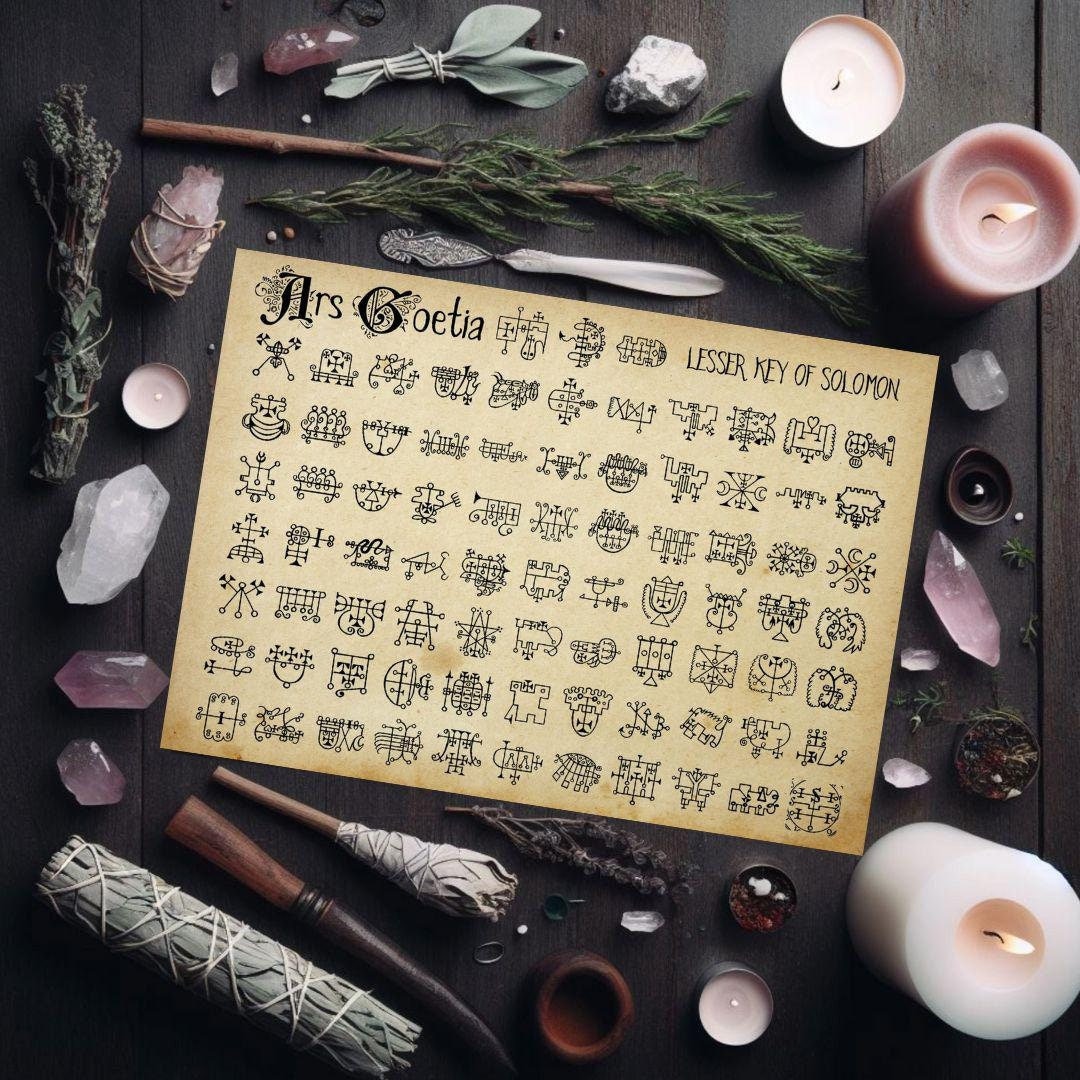 Ars Goetia
LESSER KEY OF SOLOMON